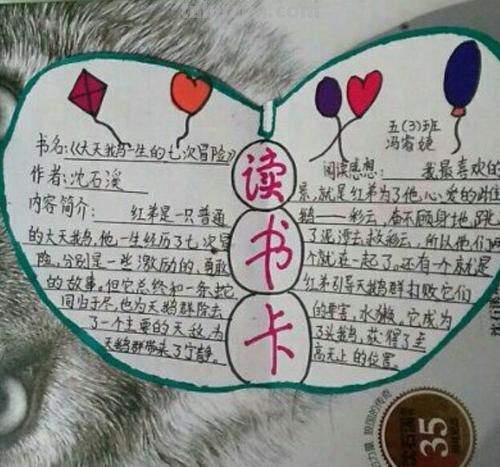 读书卡
书名:《大天鹅一生的七次冒险》
作者:沈石溪
内容简介: 红弟是一只普通
的大天鹅,他一生经历了七次冒
险,分别是一些激励的,勇敢
的故事,但它总终和一条蛇
同归于尽,也为天鹅群除去
了一个主要的天敌,为
天鹅群带来了宁静。
五(3)班
冯睿婕
阅读感想: 我最喜欢的
景,就是红弟为了他,心爱的
鹅——彩云,奋不顾身地,跳
了泥潭去救彩云,所以他们两
个就在一起了。还有一个就是
红弟引导天鹅群打败它们
的要害,水獭,它成为
了头鹅,获得了至
高无上的位置。
35